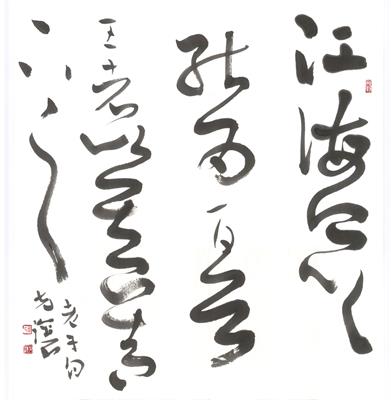 江海所以
能为百谷
王者以其善
下之
老子句